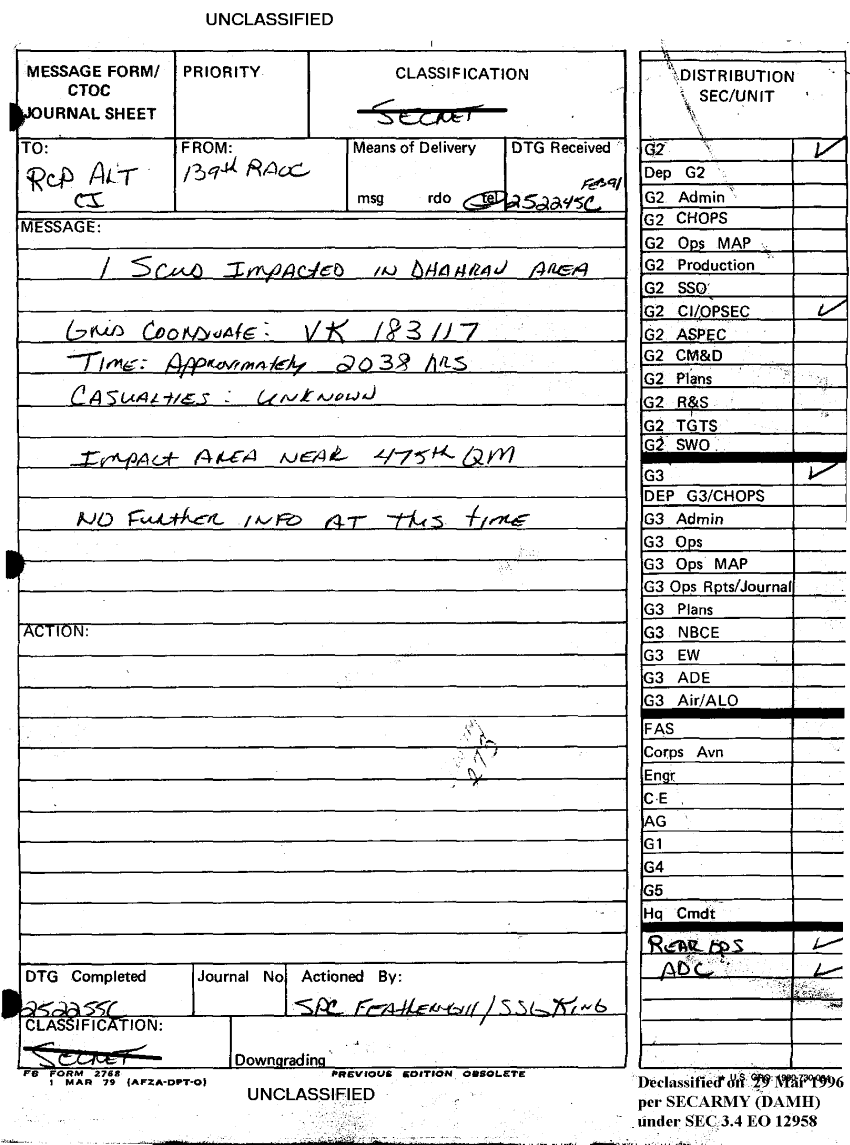 UNCLASSIFIED
MESSAGE FORM/
CTOC
JOURNAL SHEET
PRIORITY
CLASSIFICATION
SECRET
TO:
RCP ALT
CI
FROM:
139th RAOC
Means of Delivery
msg rdo tel
DTG Received
FEB91
252245C
MESSAGE:
1 SCUD IMPACTED IN DHAHRAN AREA
GRID COORDINATE: VK 183117
TIME: APPROXIMATELY 2038 HRS
CASUALTIES: UNKNOWN
IMPACT AREA NEAR 475th QM
NO FURTHER INFO AT THIS TIME
ACTION:
275
DTG Completed
252255C
Journal No
Actioned By:
SPC /SSG KING
CLASSIFICATION:
SECRET
Downgrading
FB FORM 2768
1 MAR 79 (AFZA-DPT-O)
PREVIOUS EDITION OBSOLETE
UNCLASSIFIED
DISTRIBUTION
SEC/UNIT
G2
Dep G2
G2 Admin
G2 CHOPS
G2 Ops MAP
G2 Production
G2 SSO
G2 CI/OPSEC
G2 ASPEC
G2 CM&D
G2 Plans
G2 R&S
G2 TGTS
G2 SWO
G3
DEP G3/CHOPS
G3 Admin
G3 Ops
G3 Ops MAP
G3 Ops Rpts/Journal
G3 Plans
G3 NBCE
G3 EW
G3 ADE
G3 Air/ALO
FAS
Corps Avn
Engr
C-E
AG
G1
G4
G5
Hq Cmdt
REAR OPS
ADC
Declassified on 29 Mar 1996
per SECARMY (DAMH)
under SEC 3.4 EO 12958